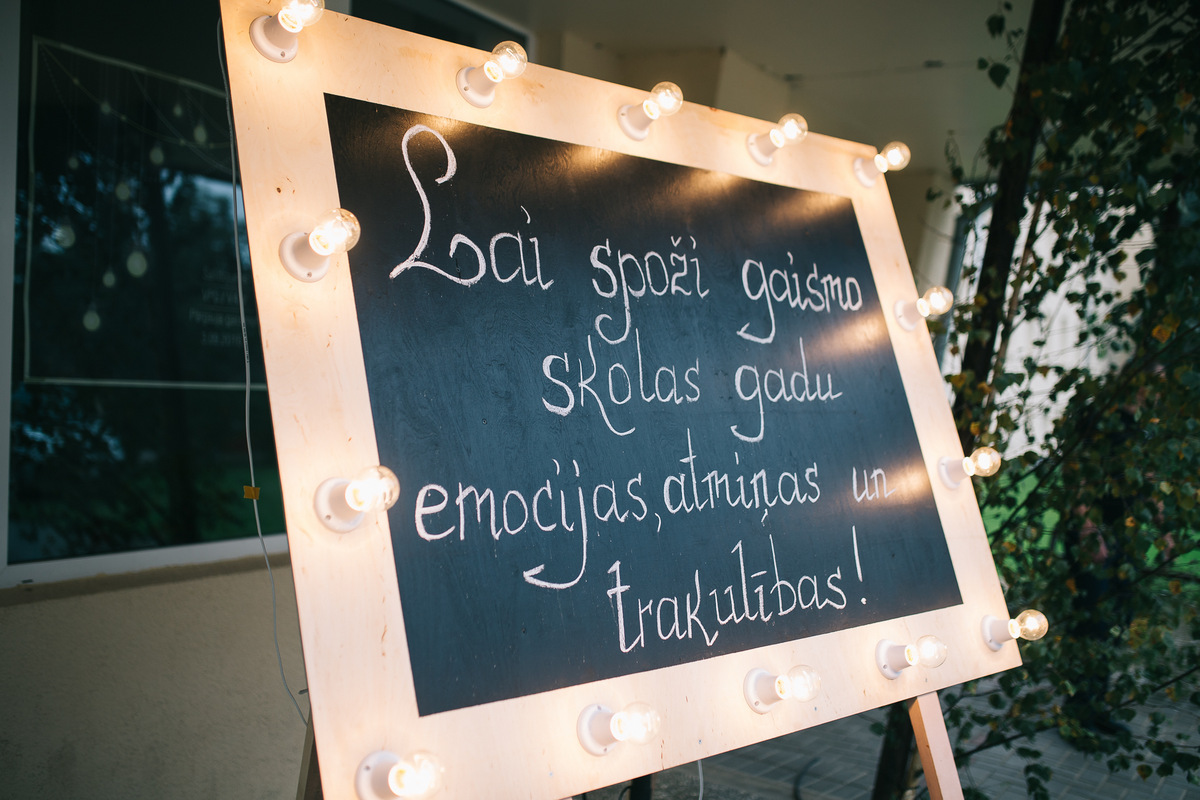 Lai spoži gaismo
skolas gadu
emocijas, atmiņas un
trakulības!